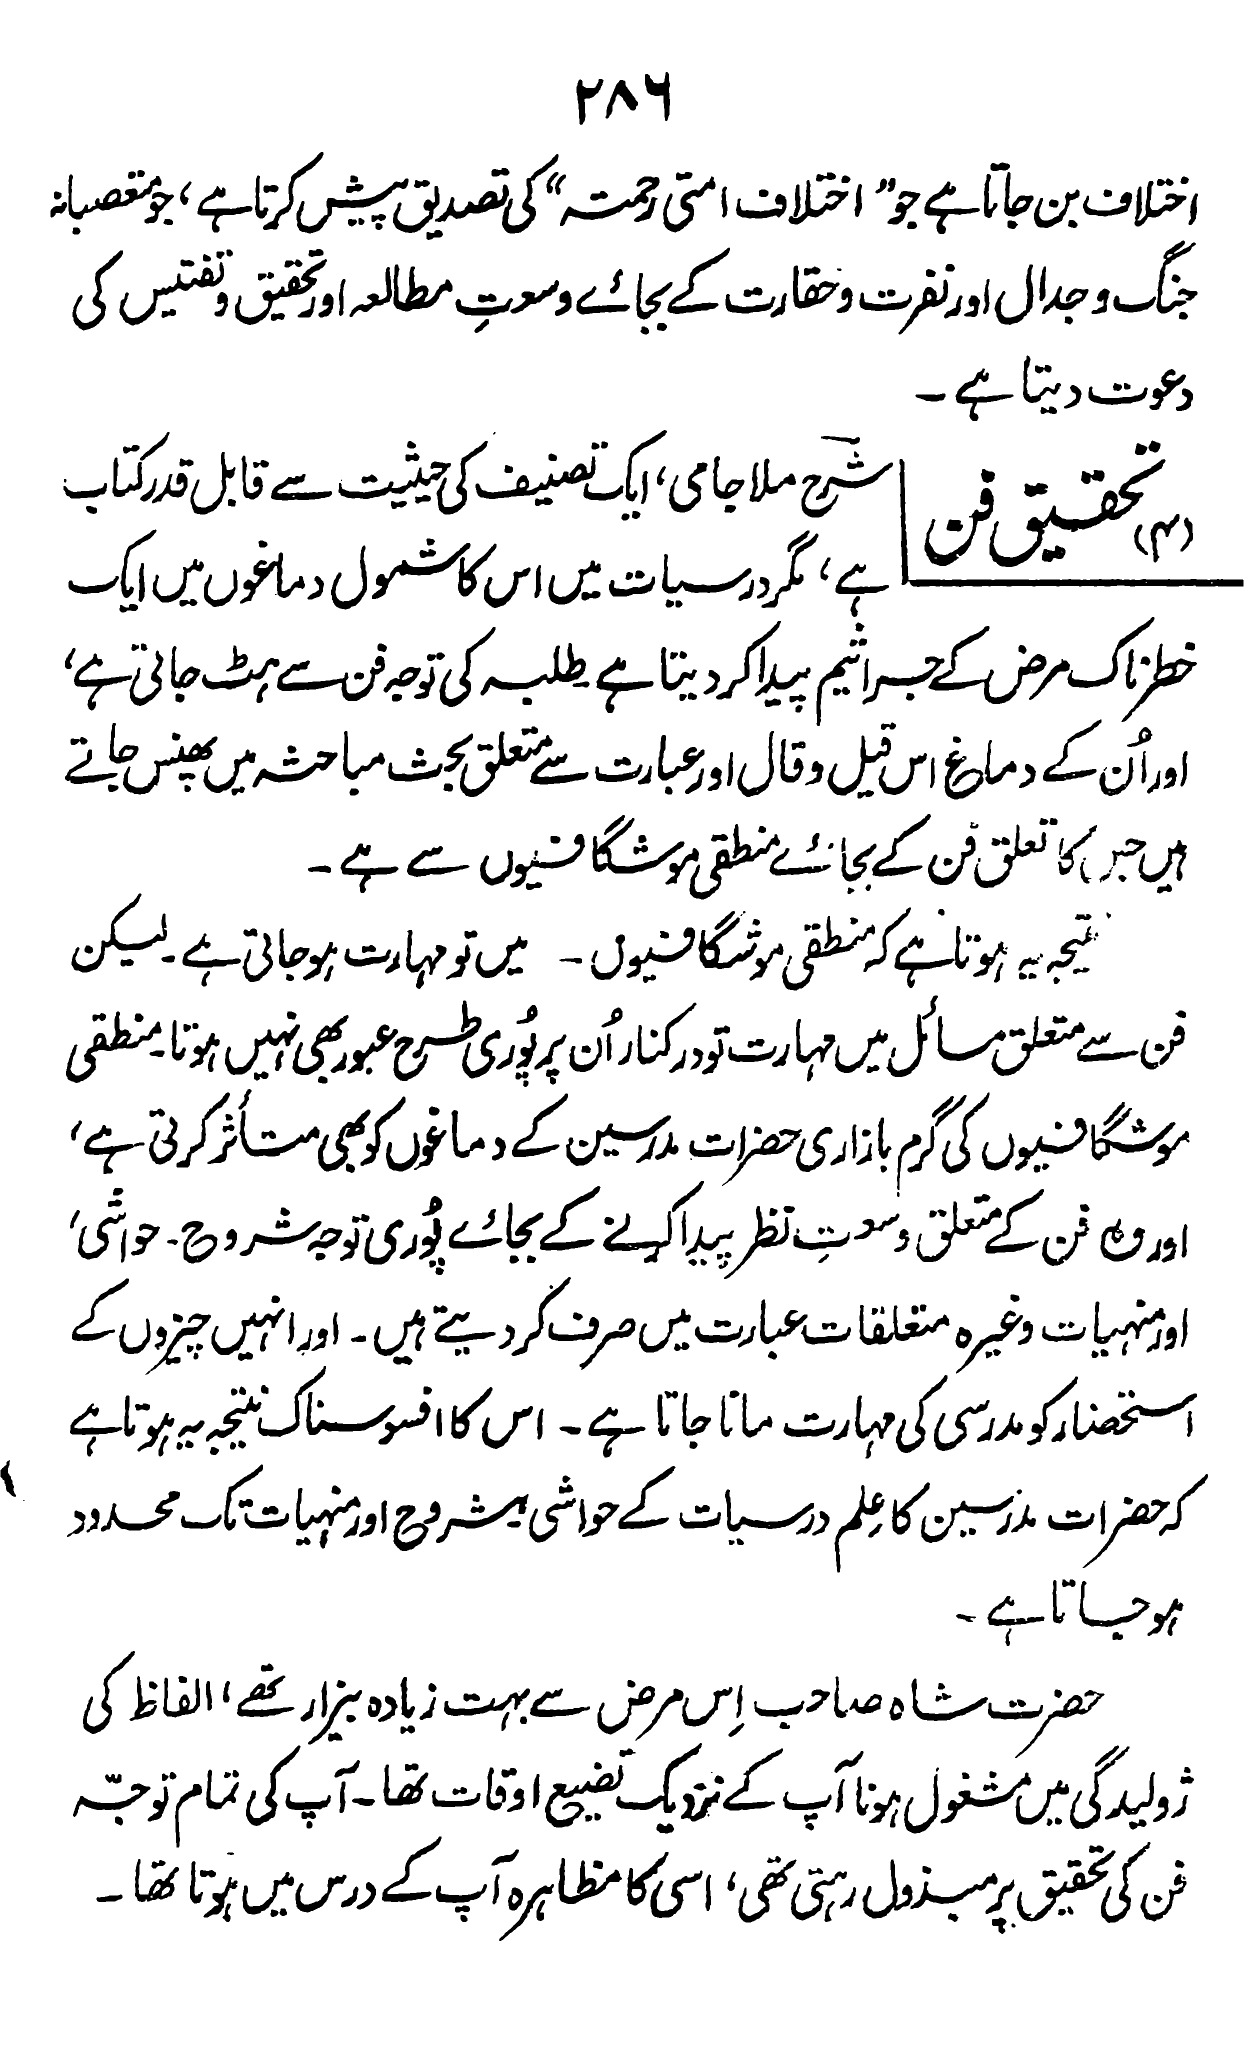 ۲۸۶
اختلاف بن جاتا ہے جو ”اختلاف امتی رحمتہ“ کی تصدیق پیش کرتا ہے، جو متعصبانہ
جنگ و جدال اور نفرت و حقارت کے بجائے وسعتِ مطالعہ اور تحقیق و تفتیس کی
دعوت دیتا ہے۔
(۴) تحقیق فن
شرح ملا جامی، ایک تصنیف کی حیثیت سے قابل قدر کتاب
ہے، مگر درسیات میں اس کا شمول دماغوں میں ایک
خطرناک مرض کے جراثیم پیدا کر دیتا ہے۔ طلبہ کی توجہ فن سے ہٹ جاتی ہے،
اور اُن کے دماغ اس قیل و قال اور عبارت سے متعلق بحث مباحثہ میں پھنس جاتے
ہیں جس کا تعلق فن کے بجائے منطقی موشگافیوں سے ہے۔
نتیجہ یہ ہوتا ہے کہ منطقی موشگافیوں۔ میں تو مہارت ہو جاتی ہے۔ لیکن
فن سے متعلق مسائل میں مہارت تو درکنار اُن پر پُوری طرح عبور بھی نہیں ہوتا۔ منطقی
موشگافیوں کی گرم بازاری حضرات مدرسین کے دماغوں کو بھی متأثر کرتی ہے،
اور وہ فن کے متعلق وسعتِ نظر پیدا کرنے کے بجائے پُوری توجہ شروح۔ حواشی،
اور منہیات وغیرہ متعلقات عبارت میں صرف کر دیتے ہیں۔ اور انہیں چیزوں کے
استحضار کو مدرسی کی مہارت مانا جاتا ہے۔ اس کا افسوسناک نتیجہ یہ ہوتا ہے
کہ حضرات مدرسین کا عِلم درسیات کے حواشی، شروح اور منہیات تک محدود
ہو جاتا ہے۔
حضرت شاہ صاحب اِس مرض سے بہت زیادہ بیزار تھے، الفاظ کی
ژولیدگی میں مشغول ہونا آپ کے نزدیک تضییع اوقات تھا۔ آپ کی تمام توجّہ
فن کی تحقیق پر مبذول رہتی تھی، اسی کا مظاہرہ آپ کے درس میں ہوتا تھا۔